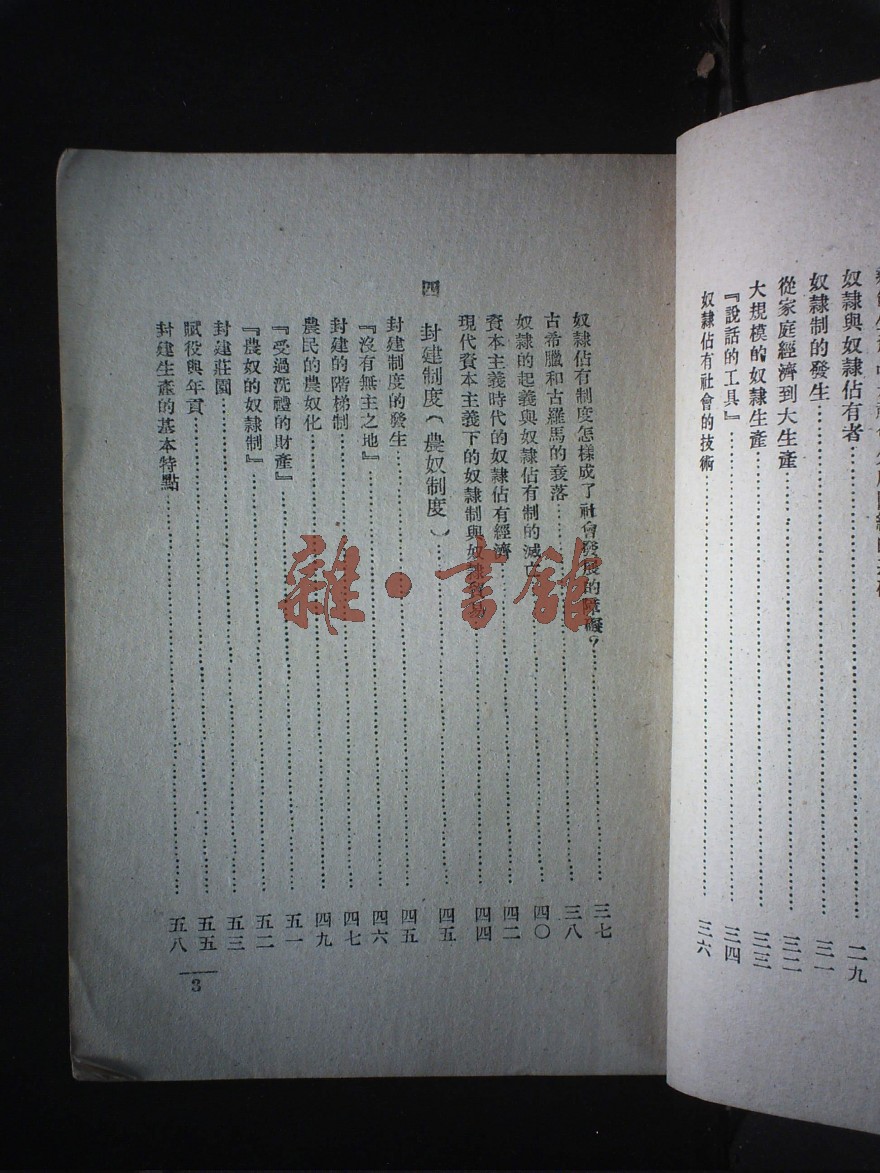 奴隸與奴隸佔有者……二九
奴隸制的發生……三一
從家庭經濟到大生產……三二
大規模的奴隸生產……三三
『說話的工具』……三四
奴隸佔有社會的技術……三六
奴隸佔有制度怎樣成了社會發展的障礙？……三七
古希臘和古羅馬的衰落……三八
奴隸的起義與奴隸佔有制的滅亡……四〇
資本主義時代的奴隸佔有經濟……四二
現代資本主義下的奴隸制與奴隸貿易……四四
四 封建制度（農奴制度）……四五
封建制度的發生……四五
『沒有無主之地』……四六
封建的階梯制……四七
農民的農奴化……四九
『受過洗禮的財產』……五一
『農奴的奴隸制』……五二
封建莊園……五三
賦役與年貢……五五
封建生產的基本特點……五八
3
雜·書館